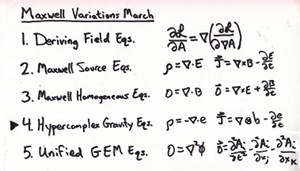 Maxwell Variations March
1. Deriving Field Eqs. ∂ℒ/∂A = ∇(∂ℒ/∂∇A)
2. Maxwell Source Eqs. ρ=∇·E J⃗=∇×B-∂E/∂t
3. Maxwell Homogeneous Eqs. 0=∇·B 0⃗=∇×E+∂B/∂t
▶4. Hypercomplex Gravity Eqs. ρ=-∇·e J⃗=∇⊗b-∂e/∂t
5. Unified GEM Eqs. 0=∇²φ